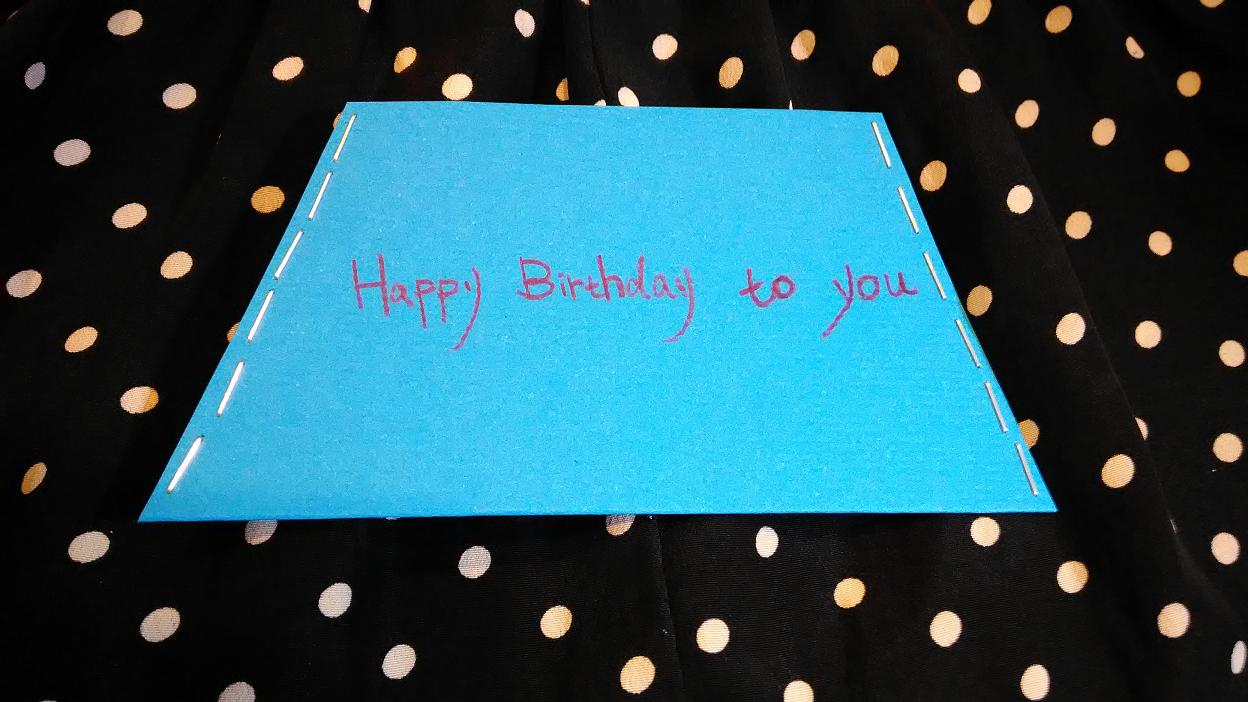 Happy Birthday to you